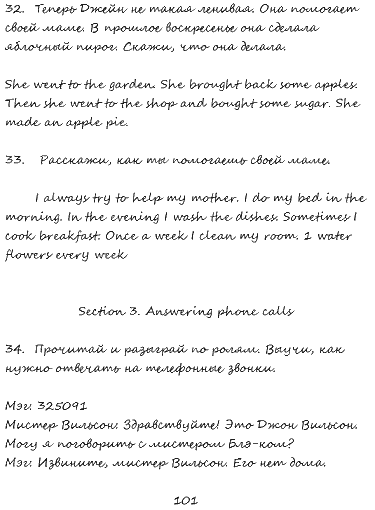 32. Теперь Джейн не такая ленивая. Она помогает
своей маме. В прошлое воскресенье она сделала
яблочный пирог. Скажи, что она делала.
She went to the garden. She brought back some apples.
Then she went to the shop and bought some sugar. She
made an apple pie.
33. Расскажи, как ты помогаешь своей маме.
I always try to help my mother. I do my bed in the
morning. In the evening I wash the dishes. Sometimes I
cook breakfast. Once a week I clean my room. 1 water
flowers every week
Section 3. Answering phone calls
34. Прочитай и разыграй по ролям. Выучи, как
нужно отвечать на телефонные звонки.
Мэг: 325091
Мистер Вильсон: Здравствуйте! Это Джон Вильсон.
Могу я поговорить с мистером Блэ-ком?
Мэг: Извините, мистер Вильсон. Его нет дома.
101